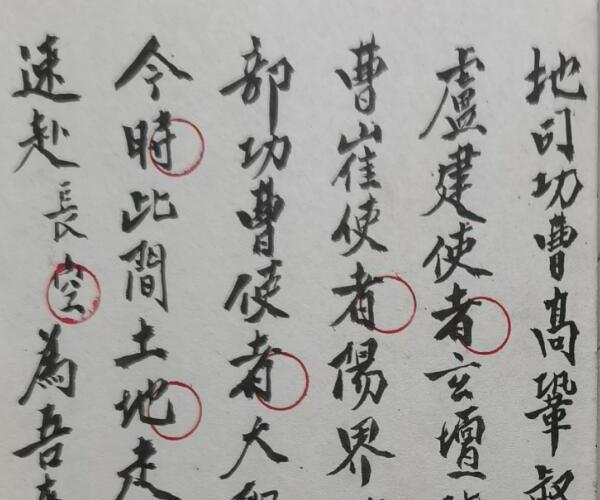 地司功曹高鞏
盧建使者玄壇
曹崔使者陽界
部功曹使者大
今時此間土地走
速赴長空為吾